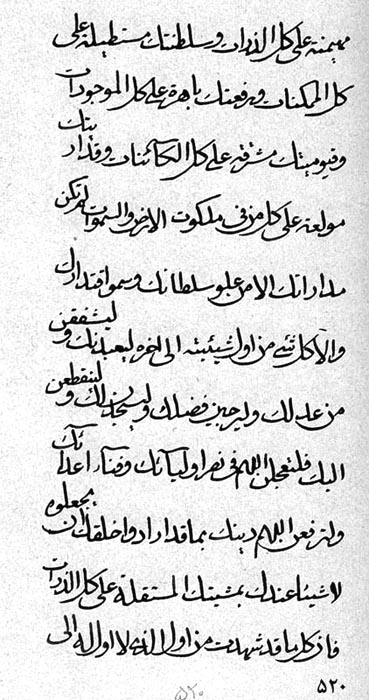 مهيمنة على كل الذرات وسلطنتك مستطيلة على
كل الممكنات ورفعتك باهرة على كل الموجودات
وقيوميتك مشرقة على كل الكائنات وقدار يتك
مولعة على كل من فى ملكوت الارض والسموات لم تكن
مداراتك الا من علو سلطانك وسمو اقتدارك
والا كل شئ من اول شيئيته الى اخره ليعبدنك و ليشفقن
من عدلك وليرجين فضلك وليسجدن لك و لينقطعن
اليك فلتعجلن اللهم فى نصر اوليائك وفناء اعدائك
ولترفعن اللهم دينك بما قد ارادوا خلقك ان يجعلوه
لا شيئا عندك بمشيتك المستقلة على كل الذرات
فاذ كل ما قد شهدت من اول الذى لا اول له الى
٥٢٠